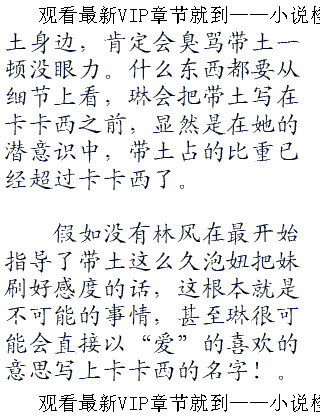 观看最新VIP章节就到——小说检
土身边，肯定会臭骂带土一
顿没眼力。什么东西都要从
细节上看，琳会把带土写在
卡卡西之前，显然是在她的
潜意识中，带土占的比重已
经超过卡卡西了。
假如没有林风在最开始
指导了带土这么久泡妞把妹
刷好感度的话，这根本就是
不可能的事情，甚至琳很可
能会直接以“爱”的喜欢的
意思写上卡卡西的名字！。
观看最新VIP章节就到——小说检